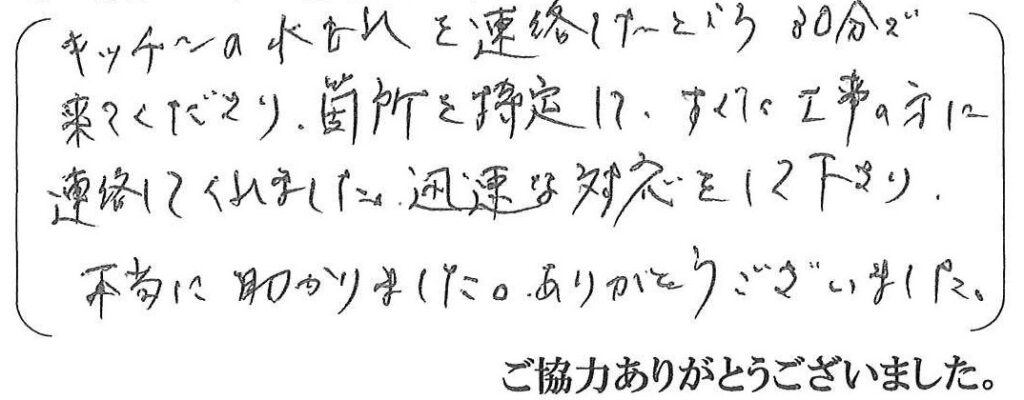 キッチンの水もれを連絡したところ30分で
来てくださり、箇所を特定して、すぐに工事の方に
連絡してくれました。迅速な対応をして下さり、
本当に助かりました。ありがとうございました。
ご協力ありがとうございました。